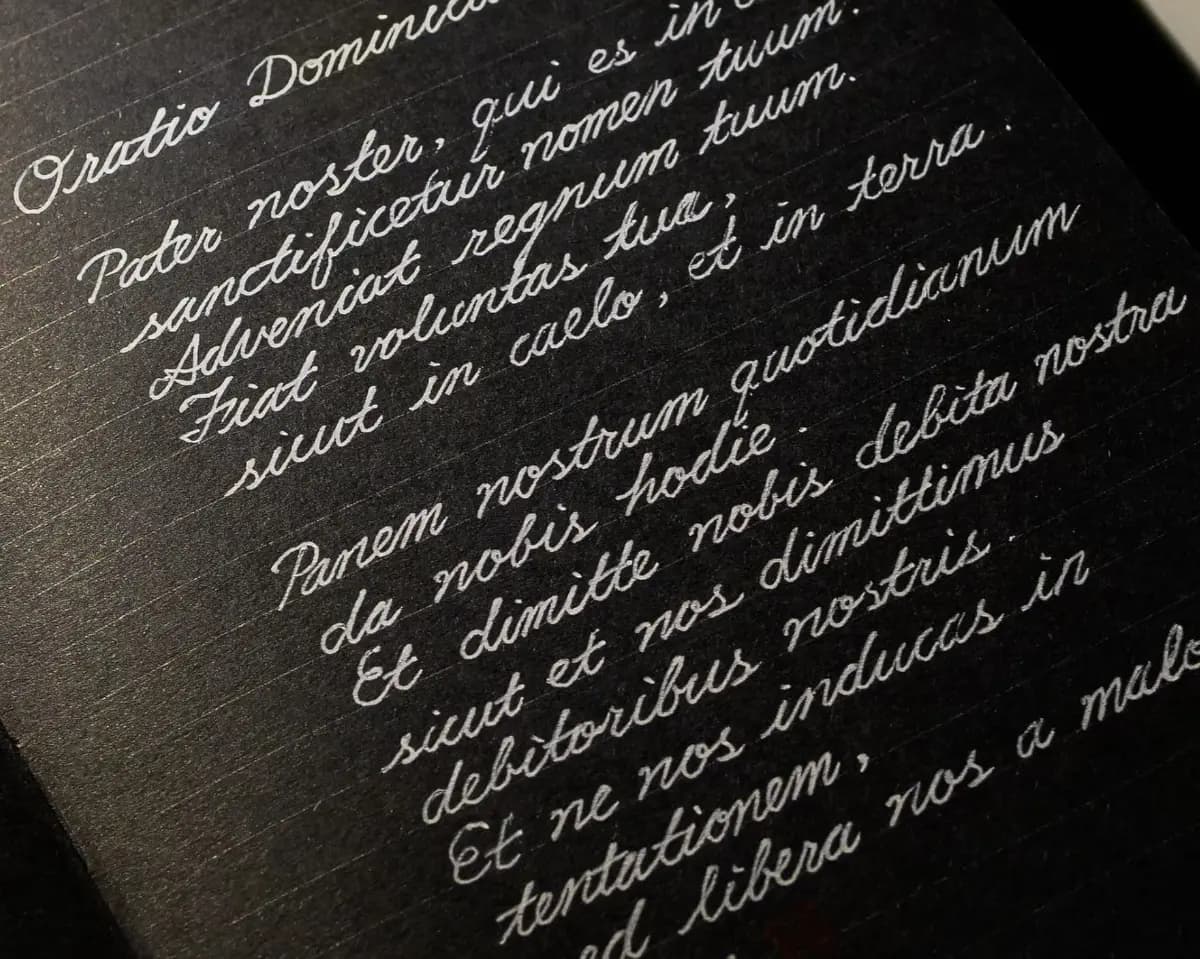 Oratio Dominica
Pater noster, qui es in
sanctificetur nomen tuum.
Adveniat regnum tuum.
Fiat voluntas tua,
sicut in caelo, et in terra.
Panem nostrum quotidianum
da nobis hodie.
Et dimitte nobis debita nostra
sicut et nos dimittimus
debitoribus nostris.
Et ne nos inducas in
tentationem,
ed libera nos a malo